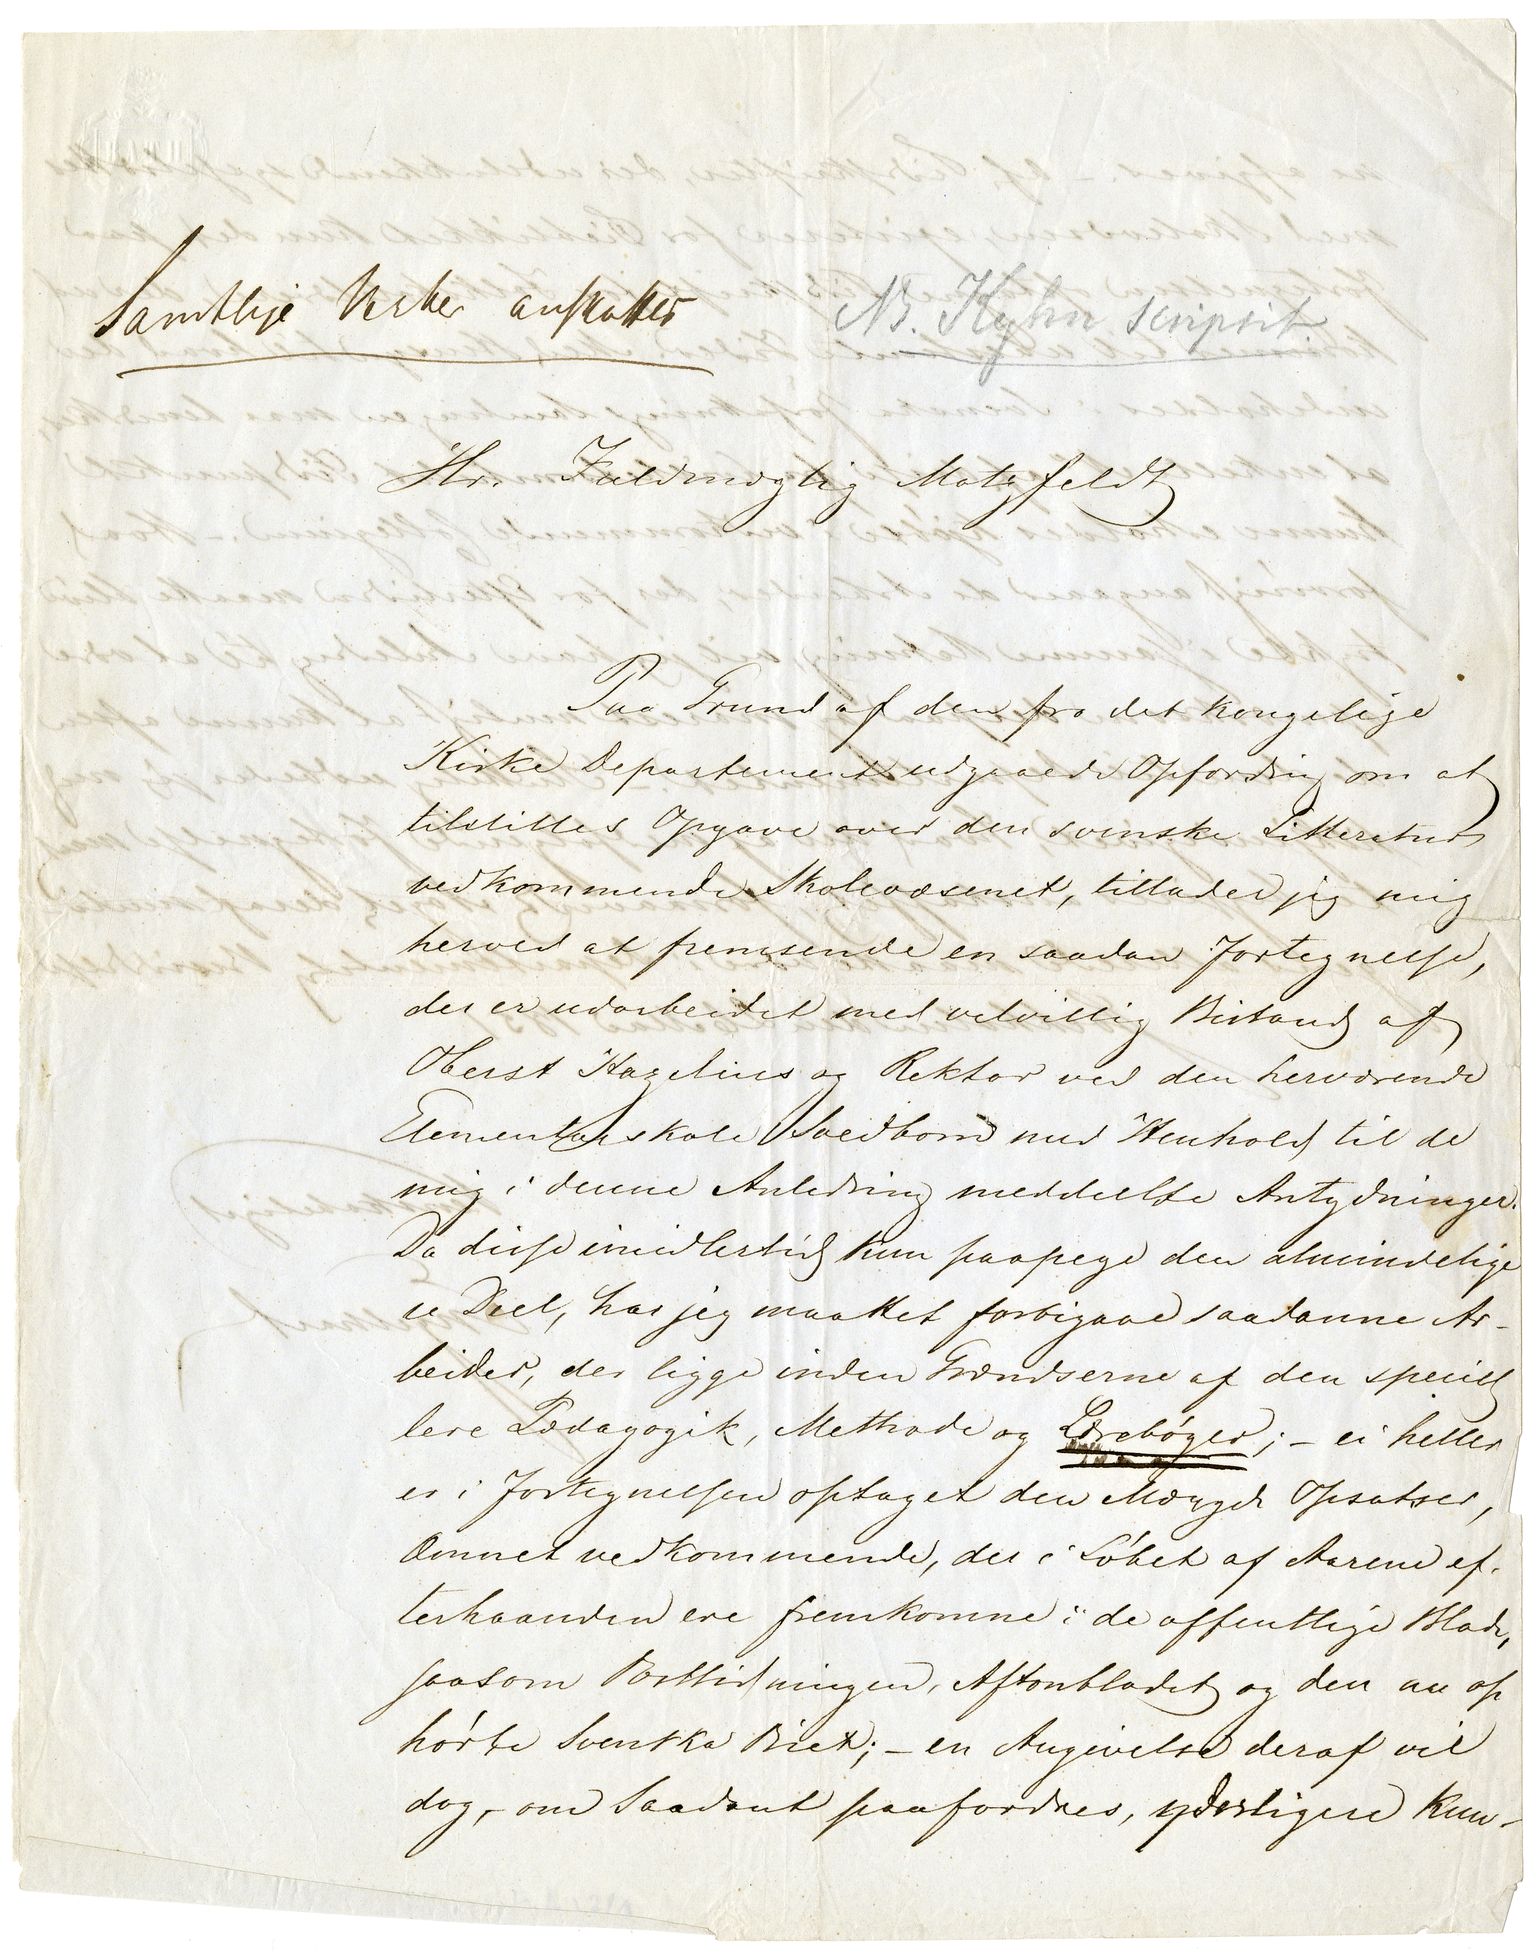 Samtlige Verker anskaffes
NB. Kyhn scripsit.
Hr. Fuldmægtig Motzfeldt
Paa Grund af den fra det kongelige
Kirke Departement udgaaede Opfordring om at
tilstilles Opgave over den svenske Litteratur
vedkommende Skolevæsenet, tillader jeg mig
herved at fremsende en saadan Fortegnelse,
der er udarbeidet med velvillig Bistand af
Oberst Hazelius og Rektor ved den herværende
Elementarskole Svedbom med Henhold til de
mig i denne Anledning meddeelte Antydninger.
Da disse imidlertid kun paapege den almindelige
re Deel, har jeg maattet forbigaae saadanne Ar-
beider, der ligge inden Grændserne af den speciel
lere Pædagogik, Methode og Lærebøger; - ei heller
er i Fortegnelsen optaget den Mængde Opsatser,
Æmnet vedkommende, der i Løbet af Aarene ef-
terhaanden ere fremkomne i de offentlige Blade,
saasom Posttidningen, Aftonbladet og den nu op
hørte Svenska Biet; - en Angivelse deraf vil
dog, - om Saadant paafordres, yderligere kun-